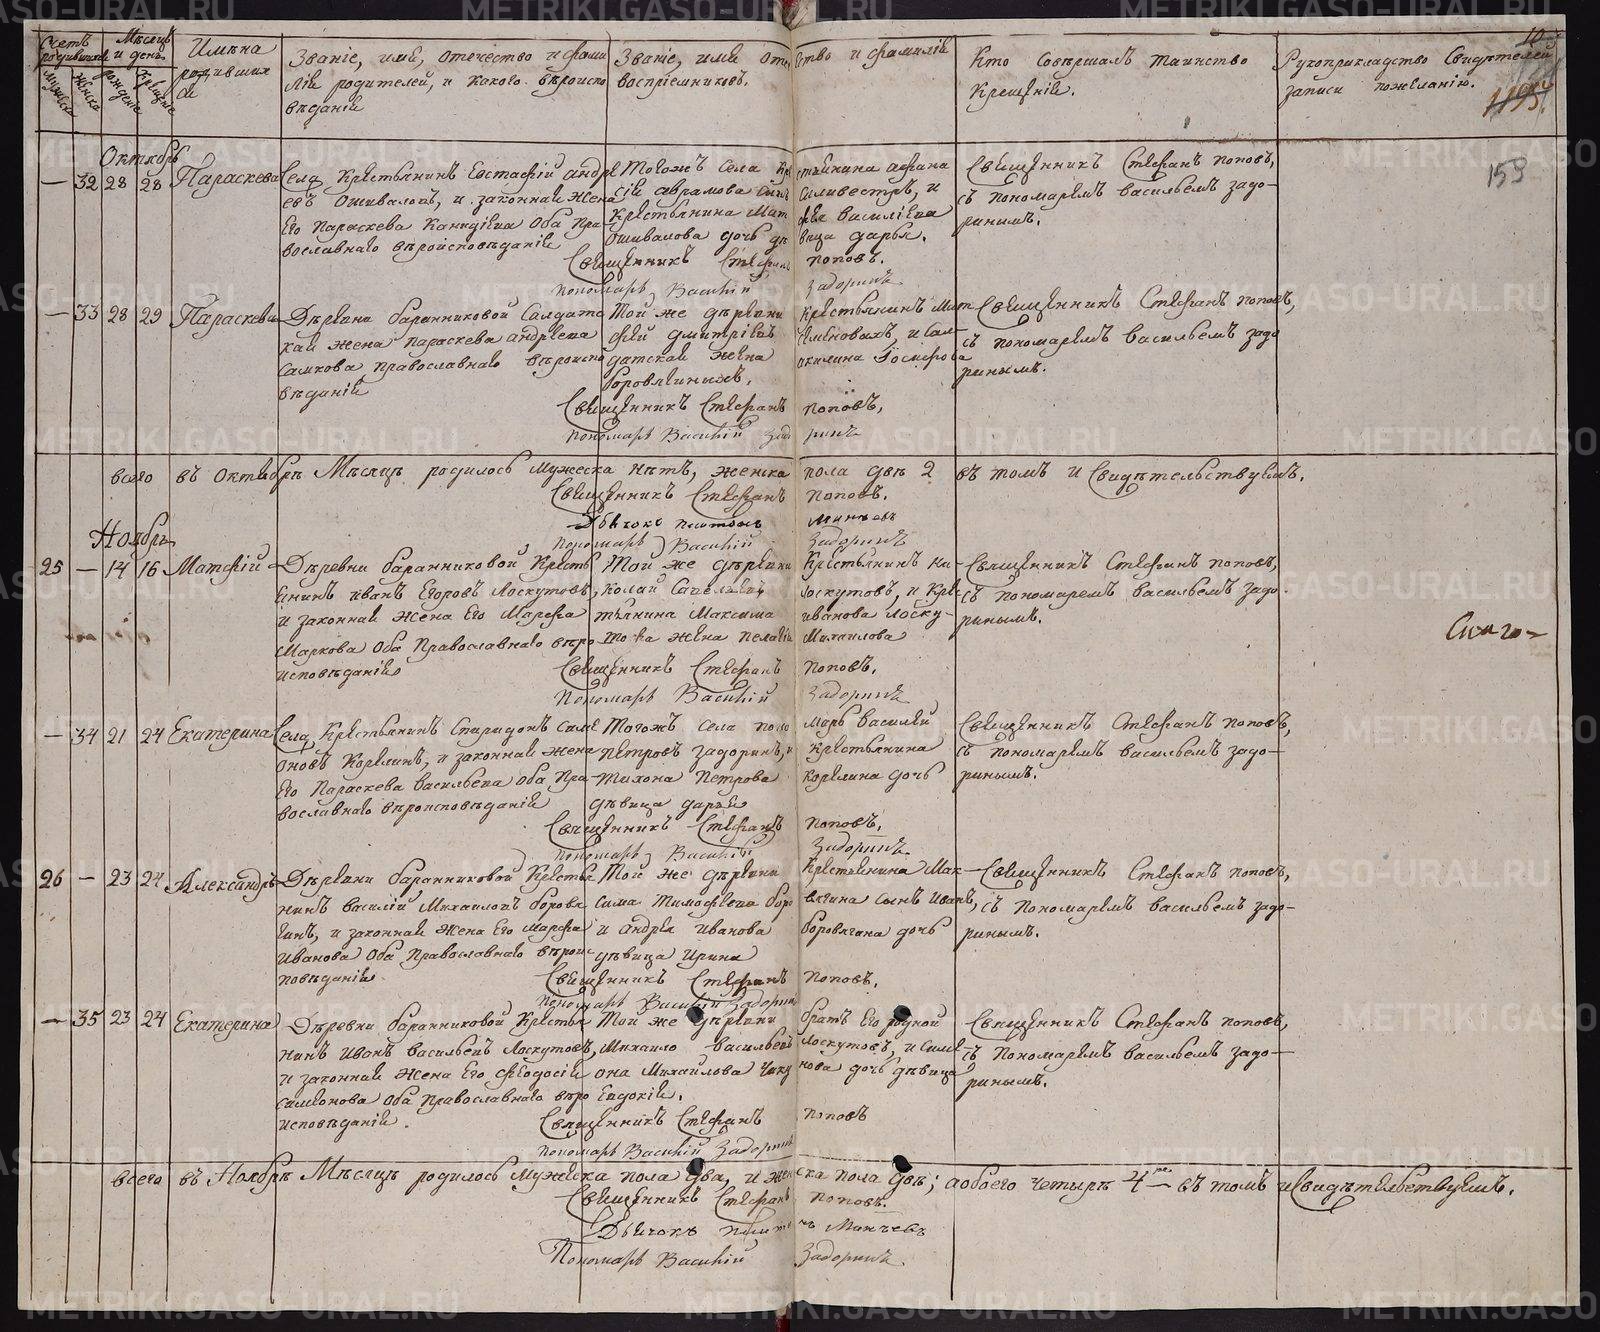 Счетъ родившихся
Мѣсяцъ и день
Имѣна родившихся
Званіе, имя, отечество и фамиліи родителей, и какого вѣроисповѣданія
Званіе, имя отечество и фамилія воспріемниковъ.
Кто совершалъ таинство крещенія.
Рукоприкладство свидѣтелей записи по желанію.
мужеска
женска
рожденія
крещенія
10
1195.
159
Октябрь
— 32 28 28 Параскева
Села крестьянинъ Евстафій андре
евъ Ошиваловъ, и законная жена
Его Параскева Кандіева Оба Пра-
вославнаго вѣроисповѣданія
Тогожъ села крестьянина афана
сія аврамова сынъ Силивестръ, и
крестьянина Матфея василіева
Ошивалова дочь девица дарья.
Священникъ Стефанъ поповъ,
съ пономаремъ васильемъ задо-
ринымъ.
Священникъ Стефанъ поповъ.
Пономарь Василій Задоринъ
— 33 28 29 Параскева
Дѣревни баранниковой Салдатс
кая жена параскева андреева
Самкова православнаго вѣроиспо
вѣданія
Той же деревни крестьянинъ Мат
фей дмитріевъ
датская жена
боровягиныхъ.
Священникъ Стефанъ поповъ,
съ пономаремъ васильемъ задо
ринымъ.
Священникъ Стефанъ поповъ,
Пономарь Василій Задоринъ
всего въ Октябрѣ Мѣсяцѣ родилось мужеска нѣтъ, женска пола двѣ 2 въ томъ и Свидѣтельствуемъ.
Священникъ Стефанъ поповъ.
Дьячокъ платонъ Манѣевъ
Пономарь Василій Задоринъ
Ноябрь
25 — 14 16 Матфій
Деревни баранниковой Кресть
янинъ иванъ Егоровъ Лоскутовъ,
и законная жена Его Марфа
Маркова Оба Православнаго вѣро
исповѣданія
Той же деревни Крестьянинъ Ни-
колай Савелевъ Лоскутовъ, и кре
стьянина Максима иванова лоску-
това жена пелагія Михаилова
Священникъ Стефанъ поповъ,
съ пономаремъ васильемъ задо
ринымъ.
Священникъ Стефанъ поповъ.
Пономарь Василій Задоринъ
— 34 21 24 Екатерина
Села Крестьянинъ Спиридонъ симе
оновъ Корелинъ, и законная жена
Его Параскева васильева Оба Пра-
вославнаго вѣроисповѣданія
Тогожъ села пономарь василей
петровъ задоринъ, и крестьянина
тихона петрова корелина дочь
дѣвица дарья
Священникъ Стефанъ поповъ,
съ пономаремъ васильемъ задо-
ринымъ.
Священникъ Стефанъ поповъ.
Пономарь Василій Задоринъ
26 — 23 24 Александръ
Деревни баранниковой Крестья
нинъ василій Михаиловъ боровя
гинъ, и законная жена Его марфа
иванова Оба Православнаго вѣроис
повѣданія
Той же деревни Крестьянина Мак-
сима тимофеева боровягина сынъ иванъ,
и андрея иванова боровягина дочь
дѣвица ирина
Священникъ Стефанъ поповъ,
съ пономаремъ васильемъ задо-
ринымъ.
Священникъ Стефанъ поповъ.
Пономарь Василій Задоринъ
— 35 23 24 Екатерина
Деревни баранниковой Крестья
нинъ Иванъ васильевъ лоскутовъ,
и законная жена Его феодосія
симеонова Оба православнаго вѣро
исповѣданія.
Той же деревни братъ Его родной
Михаило васильевъ лоскутовъ, и симе
она Михайлова дочь дѣвица
Евдокія.
Священникъ Стефанъ поповъ,
съ пономаремъ васильемъ задо-
ринымъ.
Священникъ Стефанъ поповъ
Пономарь Василій Задоринъ
всего въ Ноябрѣ Мѣсяцѣ родилось мужеска пола два, и женска пола двѣ; а обоего четыре 4ре — въ томъ и Свидѣтельствуемъ.
Священникъ Стефанъ поповъ.
Дьячокъ платонъ Манѣевъ
Пономарь Василій Задоринъ
METRIKI.GASO-URAL.RU